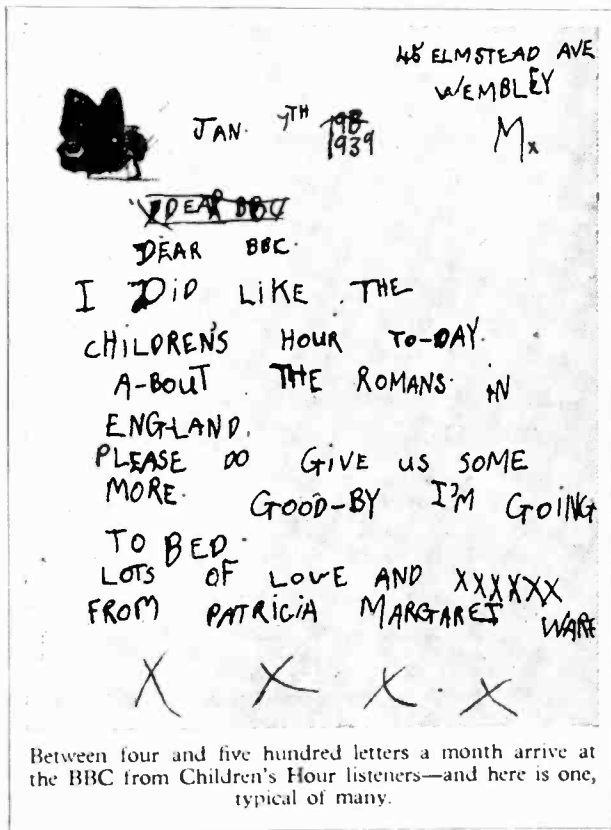 45 ELMSTEAD AVE
WEMBLEY
Mx
JAN. 7TH 198
1939
DEAR BBC
DEAR BBC.
I DiD LiKE THE
CHiLDREN'S HOUR TO-DAY.
A-BOUT THE ROMANS iN
ENGLAND.
PLEASE DO GiVE US SOME
MORE. GOOD-BY I'M GOiNG
TO BED.
LOTS OF LOVE AND XXXXXX
FROM PATRiCiA MARGARET WARE
X X X X
Between four and five hundred letters a month arrive at
the BBC from Children's Hour listeners—and here is one,
typical of many.